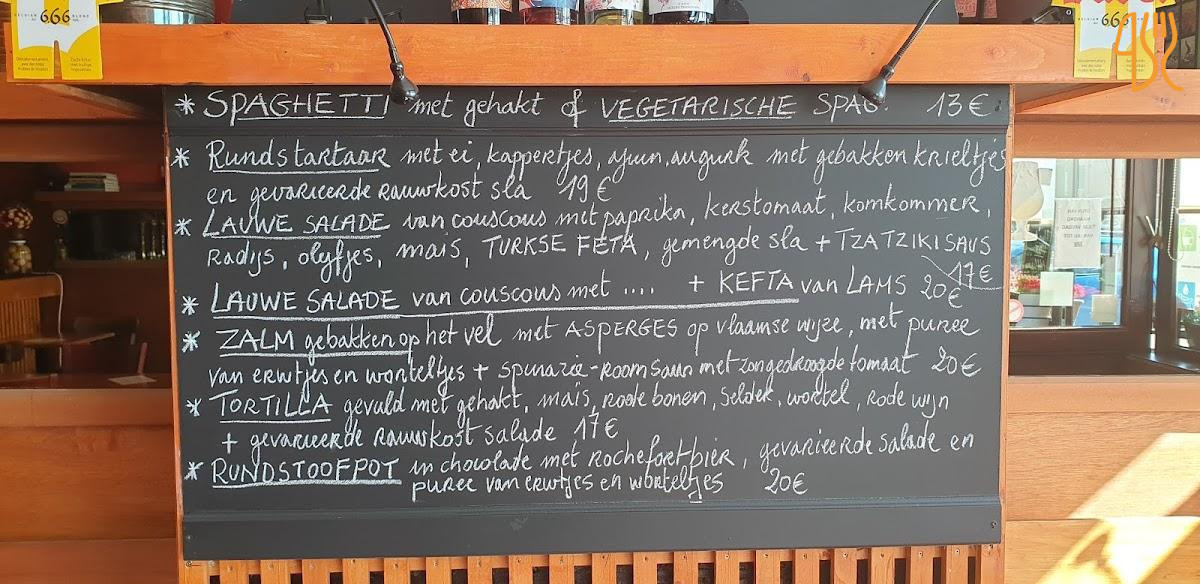 BELGIAN 666 BLOND
666
* SPAGHETTI met gehakt & VEGETARISCHE SPAG. 13€
* Rundstartaar met ei, kappertjes, ajuin, augurk met gebakken krieltjes
en gevarieerde rauwkost sla 19€
* LAUWE SALADE van couscous met paprika, kerstomaat, komkommer,
radijs, olijfjes, maïs, TURKSE FETA, gemengde sla + TZATZIKI SAUS
17€
* LAUWE SALADE van couscous met .... + KEFTA van LAMS 20€
* ZALM gebakken op het vel met ASPERGES op vlaamse wijze, met puree
van erwtjes en worteltjes + spinazie-roomsaus met zongedroogde tomaat 20€
* TORTILLA gevuld met gehakt, maïs, rode bonen, selder, wortel, rode wijn
+ gevarieerde rauwkost salade 17€
* RUNDSTOOFPOT in chocolade met Rochefortbier, gevarieerde salade en
puree van erwtjes en worteltjes 20€